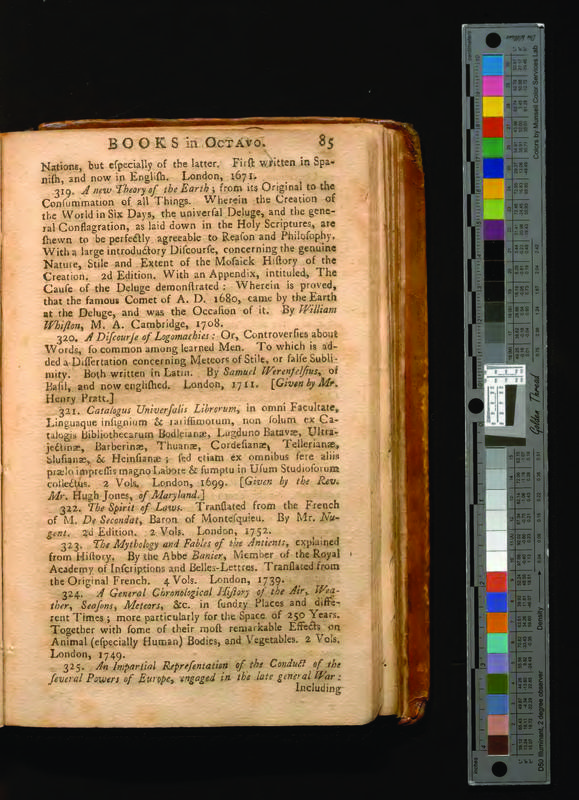 BOOKS in OCTAVO. 85
Nations, but eſpecially of the latter. Firſt written in Spa-
niſh, and now in Engliſh. London, 1671.
319. A new Theory of the Earth; from its Original to the
Conſummation of all Things. Wherein the Creation of
the World in Six Days, the univerſal Deluge, and the gene-
ral Conflagration, as laid down in the Holy Scriptures, are
ſhewn to be perfectly agreeable to Reaſon and Philoſophy.
With a large introductory Diſcourſe, concerning the genuine
Nature, Stile and Extent of the Moſaick Hiſtory of the
Creation. 2d Edition. With an Appendix, intituled, The
Cauſe of the Deluge demonſtrated: Wherein is proved,
that the famous Comet of A. D. 1680, came by the Earth
at the Deluge, and was the Occaſion of it. By William
Whiſton, M. A. Cambridge, 1708.
320. A Diſcourſe of Logomachies: Or, Controverſies about
Words, ſo common among learned Men. To which is ad-
ded a Diſſertation concerning Meteors of Stile, or falſe Subli-
mity. Both written in Latin. By Samuel Werenfelſius, of
Baſil, and now engliſhed. London, 1711. [Given by Mr.
Henry Pratt.]
321. Catalogus Univerſalis Librorum, in omni Facultate,
Linguaque inſignium & rariſſimorum, non ſolum ex Ca-
talogis Bibliothecarum Bodleianæ, Lugduno Batavæ, Ultra-
jectinæ, Barberinæ, Thuanæ, Cordeſianæ, Tellerianæ,
Sluſianæ, & Heinſianæ; ſed etiam ex omnibus fere aliis
prælo impreſſis magno Labore & ſumptu in Uſum Studioſorum
collectus. 2 Vols. London, 1699. [Given by the Rev.
Mr. Hugh Jones, of Maryland.]
322. The Spirit of Laws. Tranſlated from the French
of M. De Secondat, Baron of Monteſquieu. By Mr. Nu-
gent. 2d Edition. 2 Vols. London, 1752.
323. The Mythology and Fables of the Antients, explained
from Hiſtory. By the Abbe Banier, Member of the Royal
Academy of Inſcriptions and Belles-Lettres. Tranſlated from
the Original French. 4 Vols. London, 1739.
324. A General Chronological Hiſtory of the Air, Wea-
ther, Seaſons, Meteors, &c. in ſundry Places and diffe-
rent Times; more particularly for the Space of 250 Years.
Together with ſome of their moſt remarkable Effects on
Animal (eſpecially Human) Bodies, and Vegetables. 2 Vols.
London, 1749.
325. An Impartial Repreſentation of the Conduct of the
ſeveral Powers of Europe, engaged in the late general War:
Including
Colors by Munsell Color Services Lab
Golden Thread
Density
D50 Illuminant, 2 degree observer